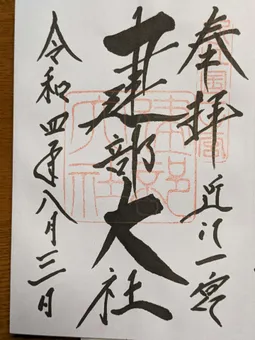 奉拝
近江一宮
建部大社
令和四年八月三日
建部大社